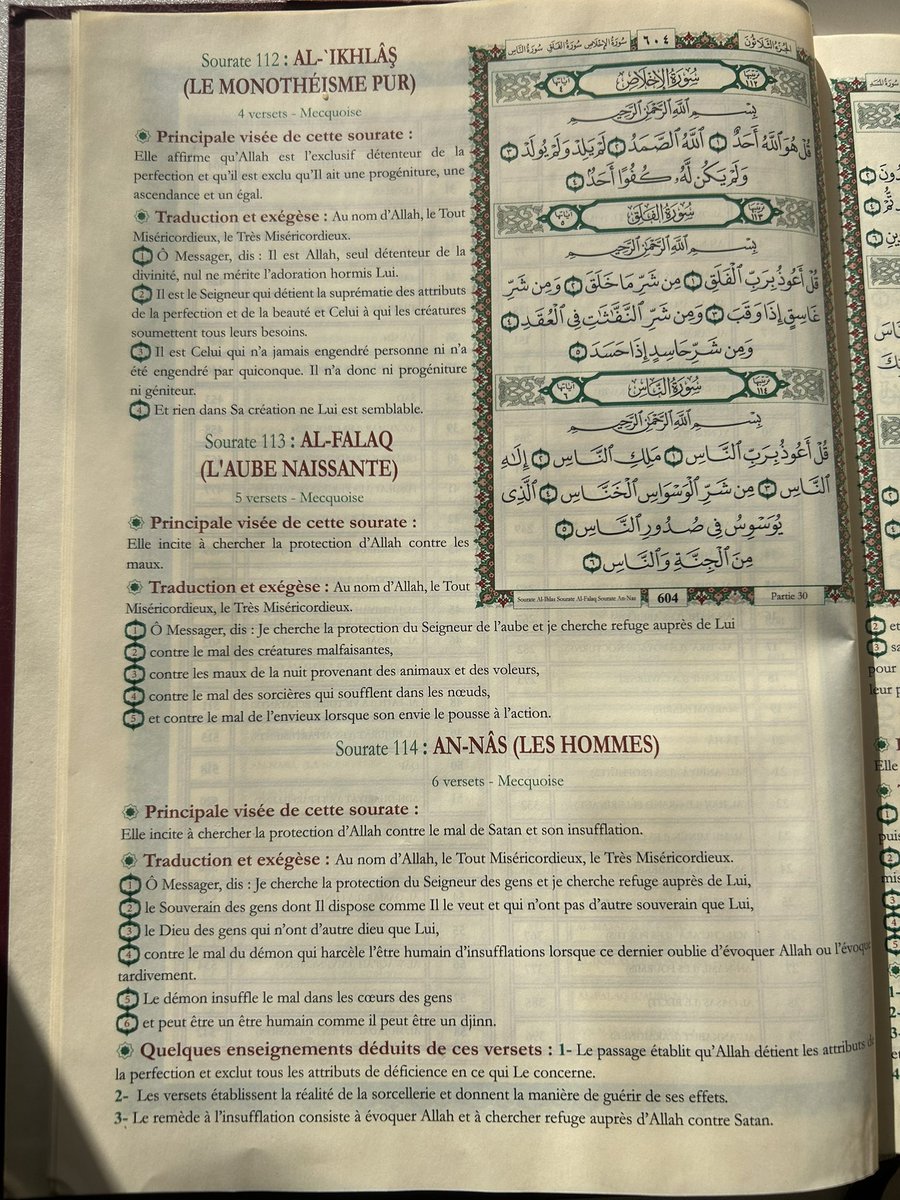 Sourate 112 : AL-`IKHLÂŞ
(LE MONOTHÉISME PUR)
4 versets - Mecquoise
Principale visée de cette sourate :
Elle affirme qu’Allah est l’exclusif détenteur de la
perfection et qu’il est exclu qu’Il ait une progéniture, une
ascendance et un égal.
Traduction et exégèse : Au nom d’Allah, le Tout
Miséricordieux, le Très Miséricordieux.
1 Ô Messager, dis : Il est Allah, seul détenteur de la
divinité, nul ne mérite l’adoration hormis Lui.
2 Il est le Seigneur qui détient la suprématie des attributs
de la perfection et de la beauté et Celui à qui les créatures
soumettent tous leurs besoins.
3 Il est Celui qui n’a jamais engendré personne ni n’a
été engendré par quiconque. Il n’a donc ni progéniture
ni géniteur.
4 Et rien dans Sa création ne Lui est semblable.
Sourate 113 : AL-FALAQ
(L'AUBE NAISSANTE)
5 versets - Mecquoise
Principale visée de cette sourate :
Elle incite à chercher la protection d’Allah contre les
maux.
Traduction et exégèse : Au nom d’Allah, le Tout
Miséricordieux, le Très Miséricordieux.
الجزء الثلاثون ٦٠٤ سورة الإخلاص سورة الفلق سورة الناس
ترتيبها ١١٢ سُورَةُ الإِخْلَاصِ آياتها ٤
بِسْمِ ٱللَّهِ ٱلرَّحْمَٰنِ ٱلرَّحِيمِ
قُلْ هُوَ ٱللَّهُ أَحَدٌ ١ ٱللَّهُ ٱلصَّمَدُ ٢ لَمْ يَلِدْ وَلَمْ يُولَدْ ٣
وَلَمْ يَكُن لَّهُۥ كُفُوًا أَحَدٌۢ ٤
ترتيبها ١١٣ سُورَةُ الفَلَقِ آياتها ٥
بِسْمِ ٱللَّهِ ٱلرَّحْمَٰنِ ٱلرَّحِيمِ
قُلْ أَعُوذُ بِرَبِّ ٱلْفَلَقِ ١ مِن شَرِّ مَا خَلَقَ ٢ وَمِن شَرِّ
غَاسِقٍ إِذَا وَقَبَ ٣ وَمِن شَرِّ ٱلنَّفَّٰثَٰتِ فِى ٱلْعُقَدِ ٤
وَمِن شَرِّ حَاسِدٍ إِذَا حَسَدَ ٥
ترتيبها ١١٤ سُورَةُ النَّاسِ آياتها ٦
بِسْمِ ٱللَّهِ ٱلرَّحْمَٰنِ ٱلرَّحِيمِ
قُلْ أَعُوذُ بِرَبِّ ٱلنَّاسِ ١ مَلِكِ ٱلنَّاسِ ٢ إِلَٰهِ
ٱلنَّاسِ ٣ مِن شَرِّ ٱلْوَسْوَاسِ ٱلْخَنَّاسِ ٤ ٱلَّذِى
يُوَسْوِسُ فِى صُدُورِ ٱلنَّاسِ ٥
مِنَ ٱلْجِنَّةِ وَٱلنَّاسِ ٦
Sourate Al-Ihlas Sourate Al-Falaq Sourate An-Nas 604 Partie 30
1 Ô Messager, dis : Je cherche la protection du Seigneur de l’aube et je cherche refuge auprès de Lui
2 contre le mal des créatures malfaisantes,
3 contre les maux de la nuit provenant des animaux et des voleurs,
4 contre le mal des sorcières qui soufflent dans les nœuds,
5 et contre le mal de l’envieux lorsque son envie le pousse à l’action.
Sourate 114 : AN-NÂS (LES HOMMES)
6 versets - Mecquoise
Principale visée de cette sourate :
Elle incite à chercher la protection d’Allah contre le mal de Satan et son insufflation.
Traduction et exégèse : Au nom d’Allah, le Tout Miséricordieux, le Très Miséricordieux.
1 Ô Messager, dis : Je cherche la protection du Seigneur des gens et je cherche refuge auprès de Lui,
2 le Souverain des gens dont Il dispose comme Il le veut et qui n’ont pas d’autre souverain que Lui,
3 le Dieu des gens qui n’ont d’autre dieu que Lui,
4 contre le mal du démon qui harcèle l’être humain d’insufflations lorsque ce dernier oublie d’évoquer Allah ou l’évoque
tardivement.
5 Le démon insuffle le mal dans les cœurs des gens
6 et peut être un être humain comme il peut être un djinn.
Quelques enseignements déduits de ces versets : 1- Le passage établit qu’Allah détient les attributs de
la perfection et exclut tous les attributs de déficience en ce qui Le concerne.
2- Les versets établissent la réalité de la sorcellerie et donnent la manière de guérir de ses effets.
3- Le remède à l’insufflation consiste à évoquer Allah et à chercher refuge auprès d’Allah contre Satan.